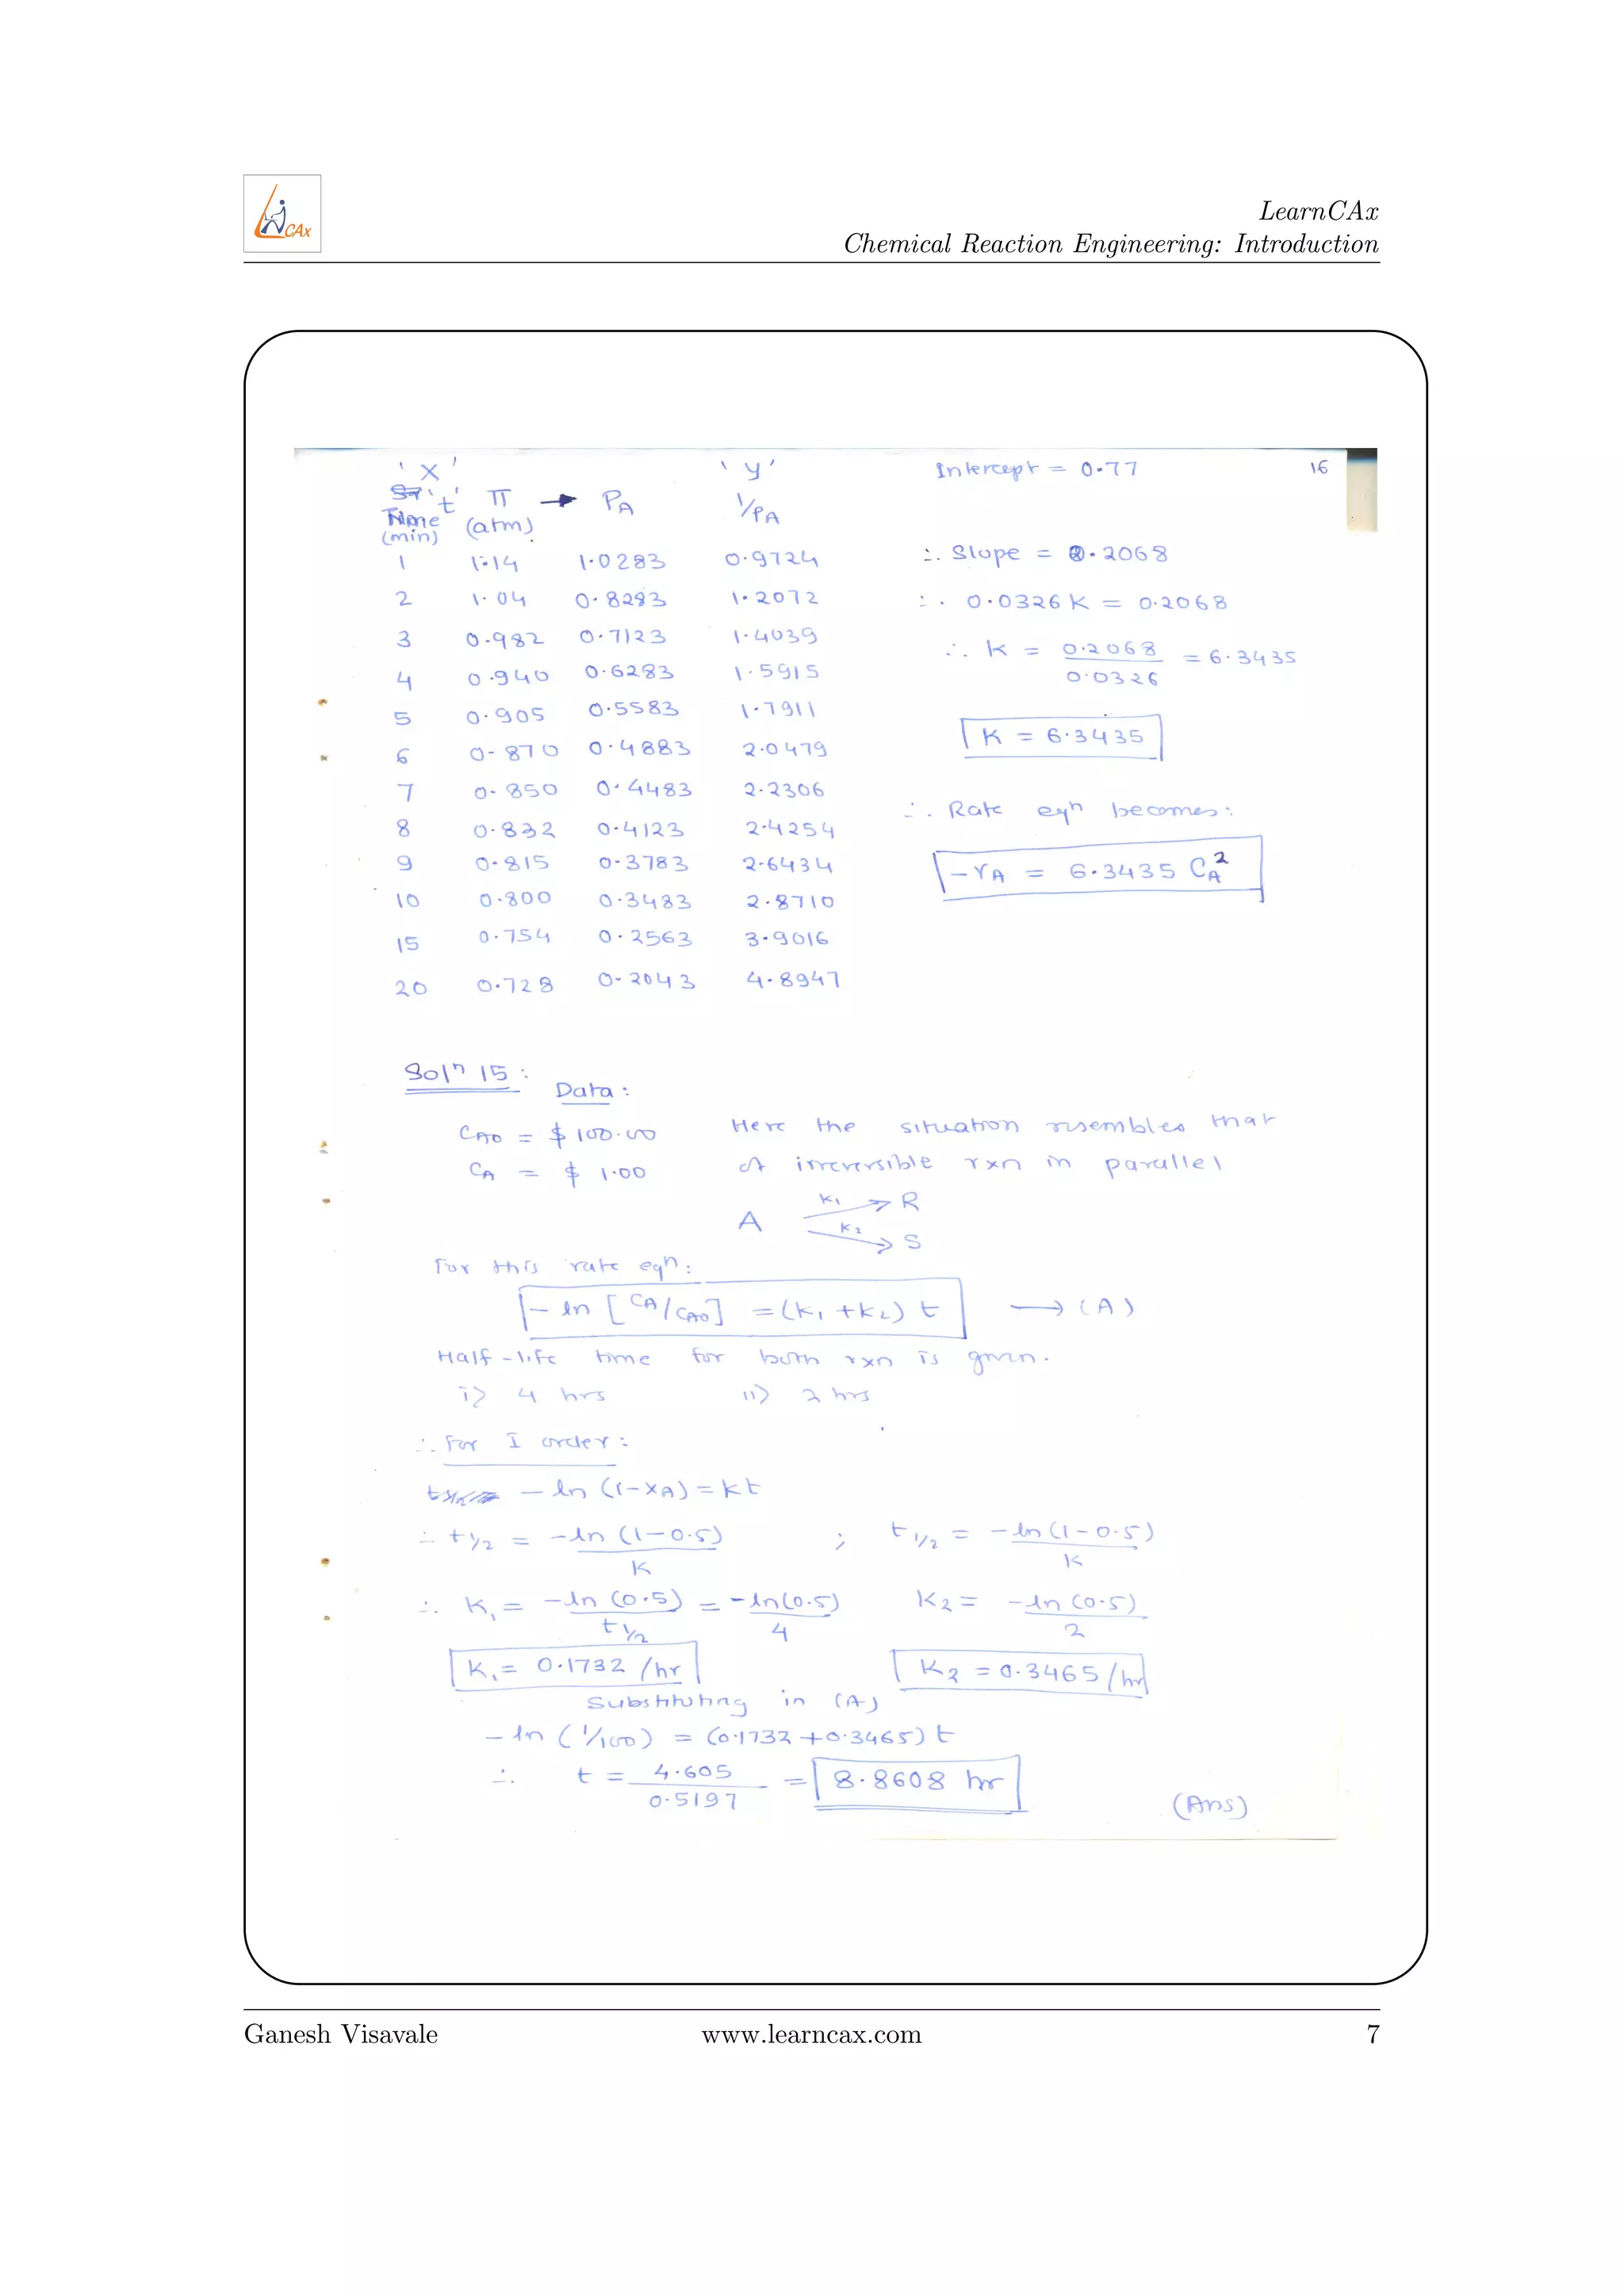 CAx
LearnCAx
Chemical Reaction Engineering: Introduction
'X' 'y' Intercept = 0.77 16
't' π → PA 1/PA
Time (atm)
(min)
1 1.14 1.0283 0.9724 ∴ Slope = 0.2068
2 1.04 0.8283 1.2072 ∴ 0.0326 K = 0.2068
3 0.982 0.7123 1.4039
4 0.940 0.6283 1.5915 ∴ K = 0.2068/0.0326 = 6.3435
5 0.905 0.5583 1.7911
6 0.870 0.4883 2.0479 K = 6.3435
7 0.850 0.4483 2.2306
8 0.832 0.4123 2.4254 ∴ Rate eqn becomes:
9 0.815 0.3783 2.6434 -rA = 6.3435 CA²
10 0.800 0.3483 2.8710
15 0.754 0.2563 3.9016
20 0.728 0.2043 4.8947
Solⁿ 15 :
Data :
CA0 = $ 100.00 Here the situation resembles that
CA = $ 1.00 of irreversible rxn in parallel
A K1 → R
K2 → S
For this rate eqn:
- ln [CA/CA0] = (K1 + K2) t → (A)
Half-life time for both rxn is given.
i) 4 hrs ii) 2 hrs
∴ For I order :
- ln (1-XA) = Kt
∴ t1/2 = -ln (1-0.5)/K ; t1/2 = -ln (1-0.5)/K
∴ K1 = -ln (0.5)/t1/2 = -ln(0.5)/4 K2 = -ln (0.5)/2
K1 = 0.1732 /hr K2 = 0.3465 /hr
Substituting in (A)
- ln (1/100) = (0.1732 + 0.3465) t
∴ t = 4.605/0.5197 = 8.8608 hr
(Ans)
Ganesh Visavale www.learncax.com 7